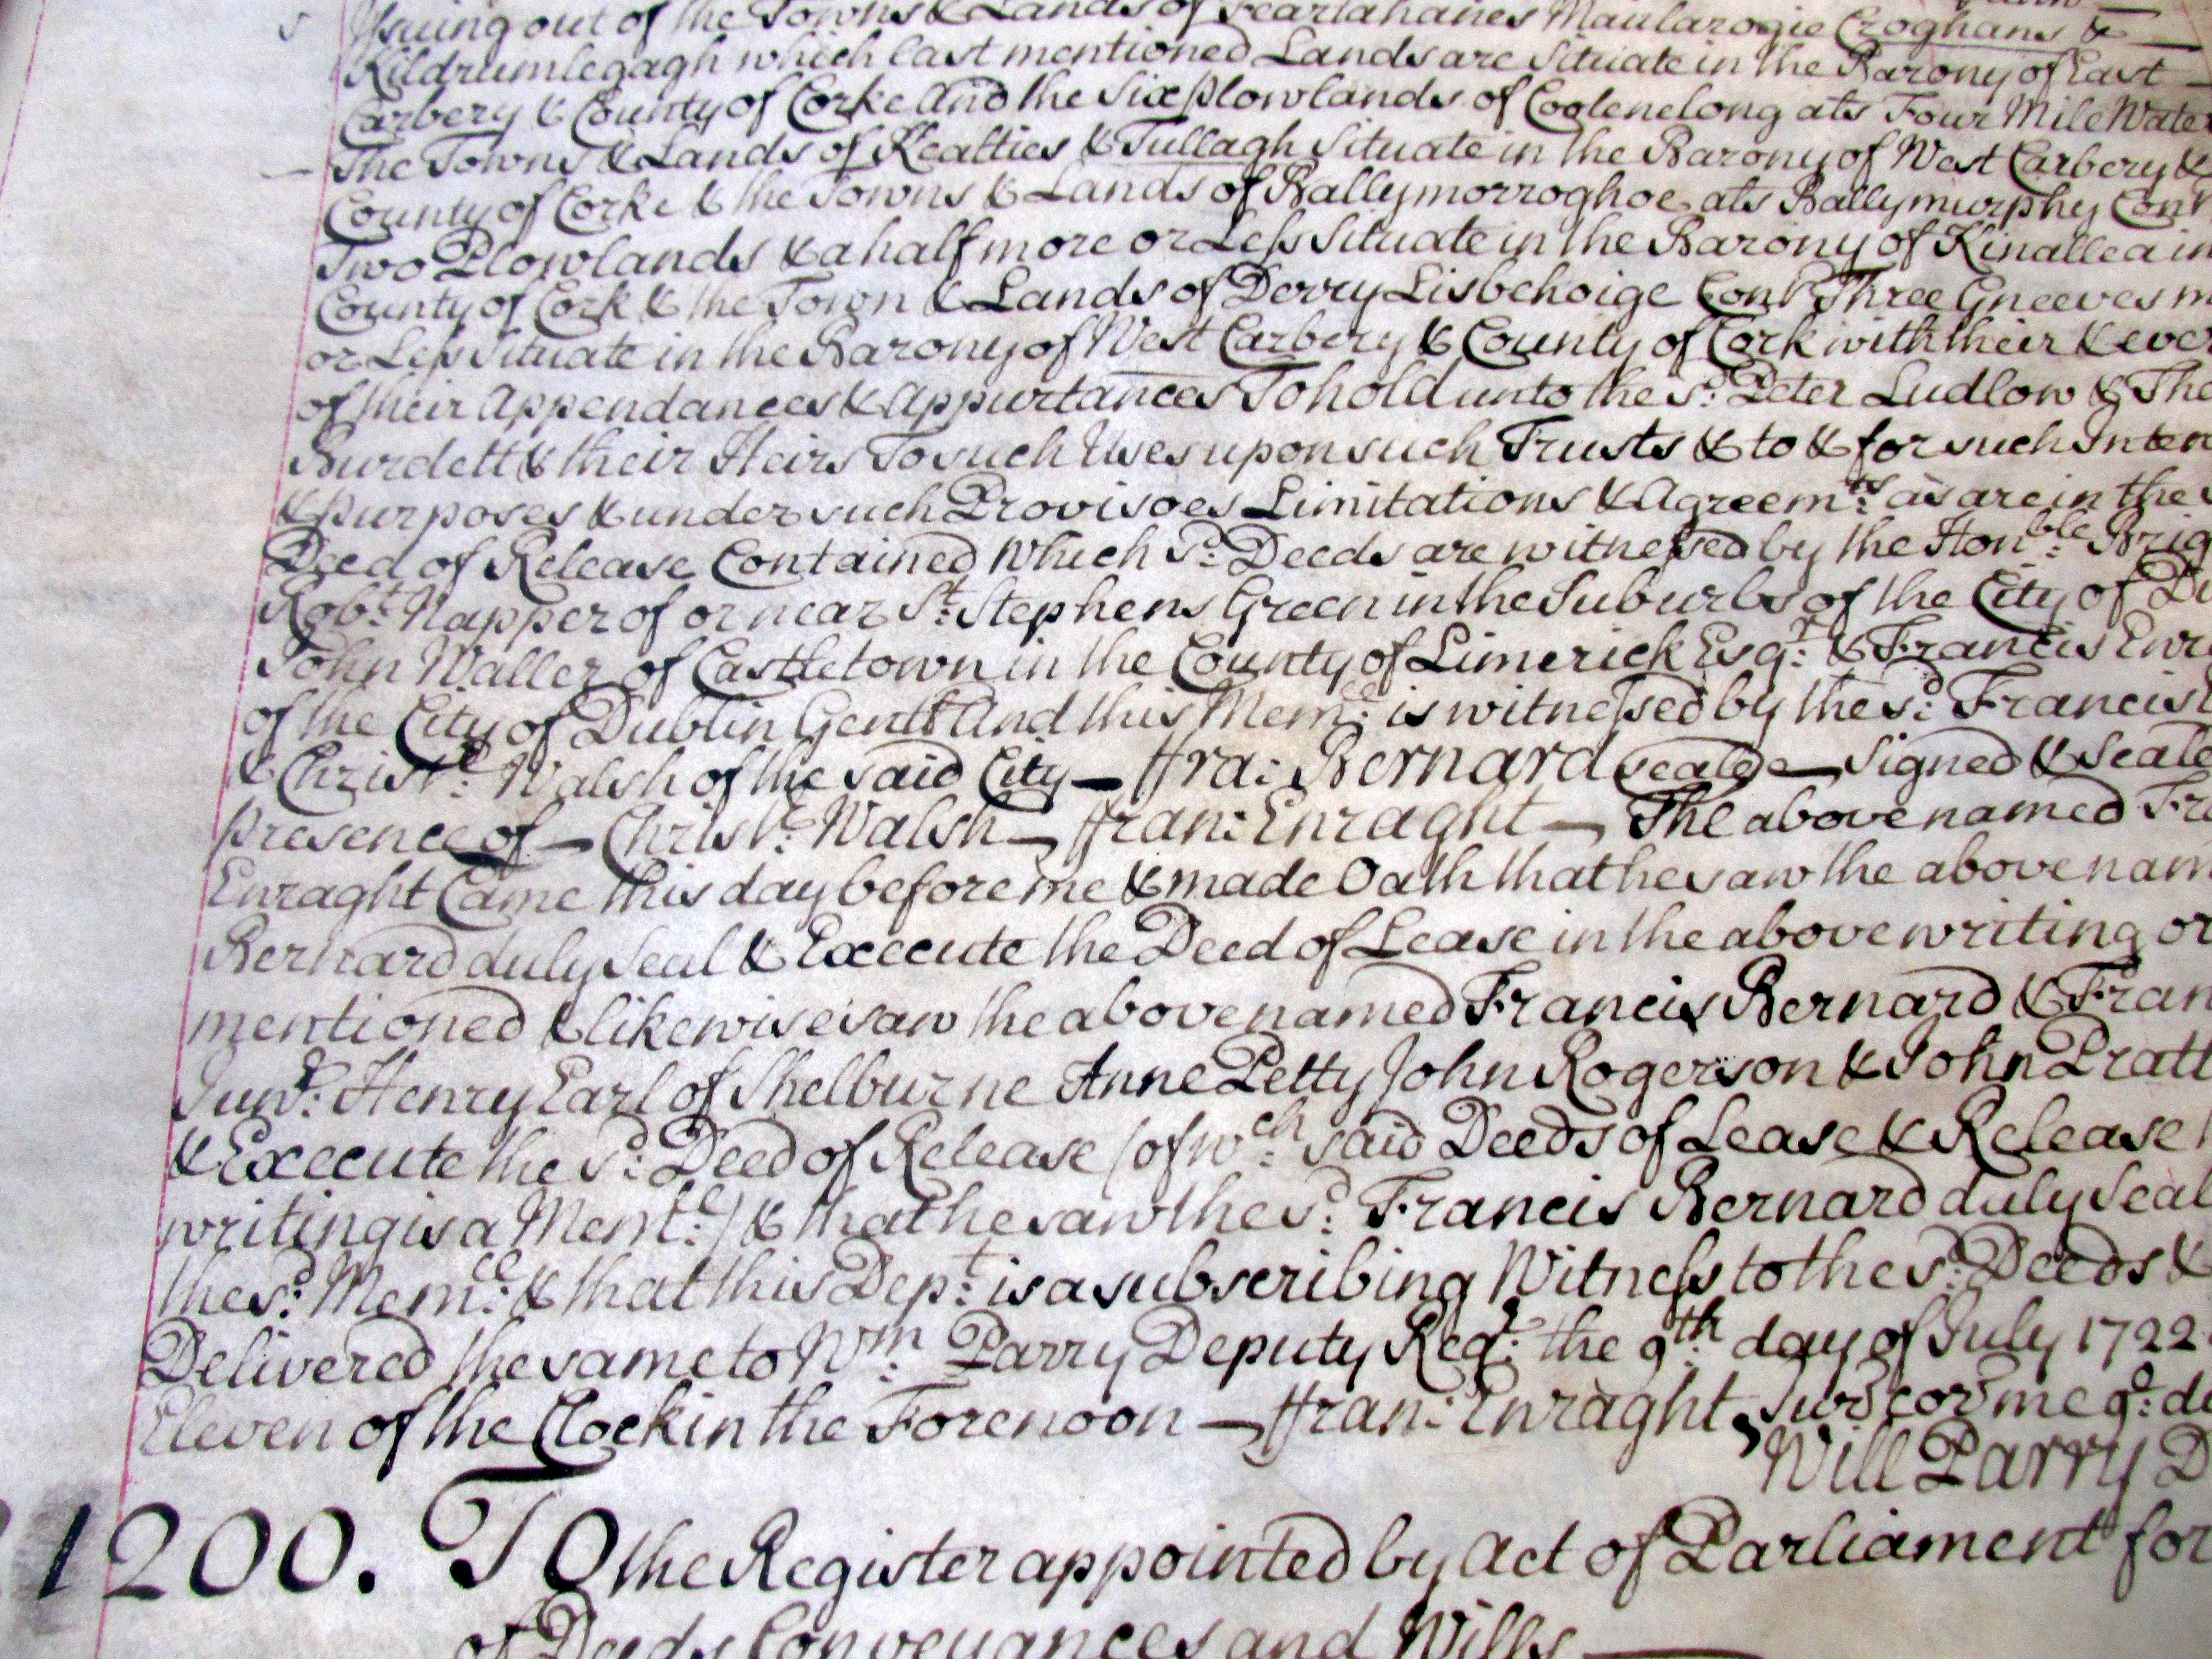 Issuing out of the Towns & Lands of Fearlahanes Maularogie Croghans &
Kildrumlegagh which last mentioned Lands are Situate in the Barony of East
Carbery & County of Corke And the Six Plowlands of Coolenelong als Four Mile Water
The Towns & Lands of Kealties & Tullagh Situate in the Barony of West Carbery &
County of Corke & the Towns & Lands of Ballymorroghoe als Ballymurphy Cont
Two Plowlands & a half more or Less Situate in the Barony of Kinallea in
County of Cork & the Town & Lands of Derry Lisbehoige Cont Three Gneeves m
or Less Situate in the Barony of West Carbery & County of Cork with their & ever
of their Appendances & Appurtances To hold unto the sd: Peter Ludlow & The
Burdett & their Heirs To such Uses upon such Trusts & to & for such Inten
& Purposes & under such Provisoes Limitations & Agreemts: as are in the
Deed of Release Contained Which sd: Deeds are witnessed by the Honble: Brig
Robt: Napper of or near St: Stephens Green in the Suburbs of the City of Du
John Waller of Castletown in the County of Limerick Esqr: & Francis Enra
of the City of Dublin Gentt And this Meml: is witnessed by the sd: Francis
& Christr: Walsh of the said City — ffra: Bernard (seale) — Signed & Seale
presence of — Christr: Walsh — ffran: Enraght — The above named Fra
Enraght Came this day before me & made Oath that he saw the above nam
Bernard duly Seal & Execute the Deed of Lease in the above writing or
mentioned & likewise saw the above named Francis Bernard & Fran
Junr: Henry Earl of Shelburne Anne Petty John Rogerson & John Pratt
& Execute the sd: Deed of Release (of wch: said Deeds of Lease & Release
writing is a Meml:) & that he saw the sd: Francis Bernard duly Seal
the sd: Meml: & that this Dept: is a subscribing Witness to the sd: Deeds &
Delivered the same to Wm: Parry Deputy Regr: the 9th: day of July 1722
Eleven of the Clock in the Forenoon — ffran: Enraght, Jur cor me 9o: d
Will Parry D
1200. To the Register appointed by Act of Parliament for
of Deeds Conveyances and Wills